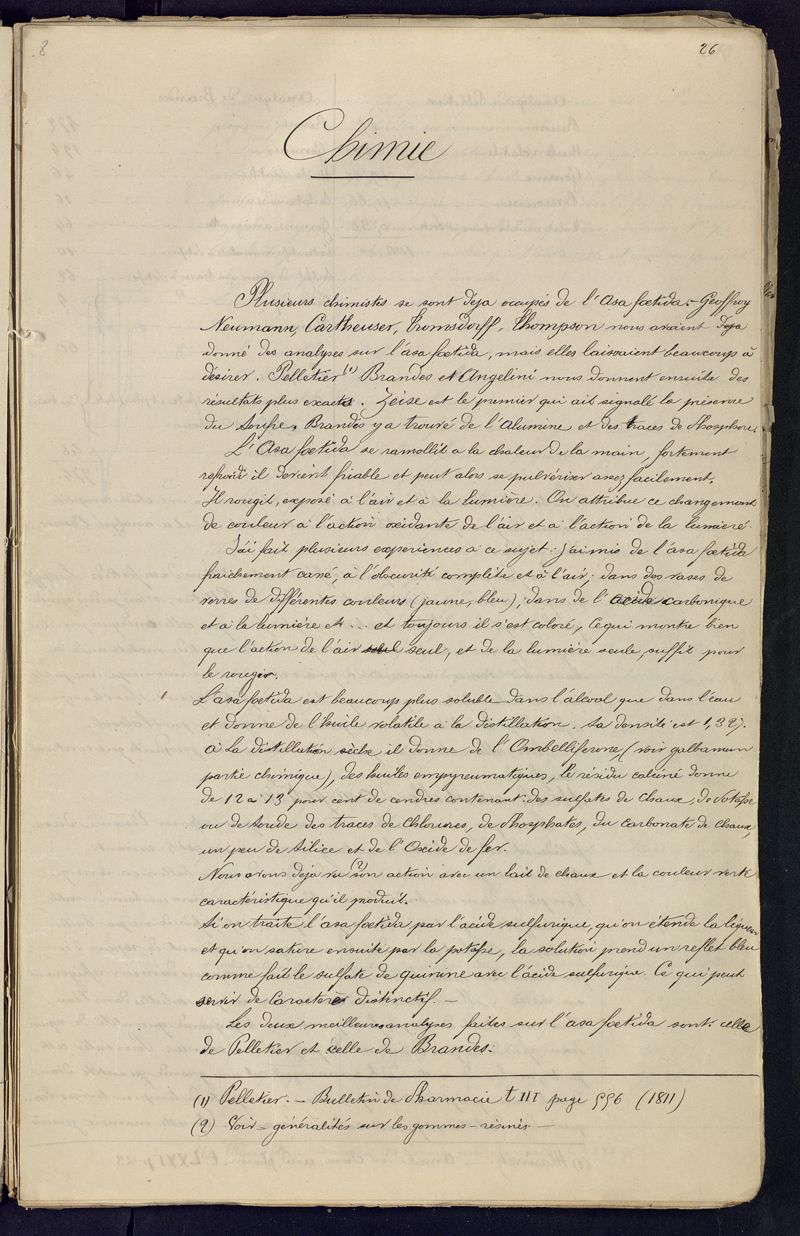 8
26
Chimie
Plusieurs chimistes se sont deja occupés de l'Asa fœtida. Geoffroy
Neumann, Cartheuser, Tromsdorff, Thompson nous avaient deja
donné des analyses sur l'asa fœtida, mais elles laissaient beaucoup à
désirer. Pelletier (1) Brandes et Angelini nous donnent ensuite des
résultats plus exacts. Zeise est le premier qui ait signalé la présence
du Soufre. Brandes y a trouvé de l'Alumine et des traces de Phosphore.
L'Asa fœtida se ramollit a la chaleur de la main, fortement
refroidi il devient friable et peut alors se pulvériser assez facilement.
Il rougit, exposé à l'air et à la lumière. On attribue ce changement
de couleur à l'action oxidante de l'air et a l'action de la lumière
J'ai fait plusieurs experiences a ce sujet: j'ai mis de l'asa fœtida
fraichement cassé, à l'obscurité complète et à l'air; dans des vases de
verres de différentes couleurs (jaune, bleu); dans de l'acide carbonique
et à la lumière et ... et toujours il s'est coloré, Ce qui montre bien
que l'action de l'air seul seul, et de la lumière seule, suffit pour
le rougir.
L'asa fœtida est beaucoup plus soluble dans l'álcool que dans l'eau
et donne de l'huile volatile à la distillation. Sa densité est 1,327.
à la distillation sèche il donne de l'Ombelliferone, (voir galbanum
partie chimique), des huiles empyreumatiques, le résidu calciné donne
de 12 a 13 pour cent de cendres contenant: des sulfates de chaux, de Potasse
ou de Soude des traces de Chlorures, de Phosphates, du carbonate de chaux,
un peu de Silice et de l'Oxide de fer.
Nous avons deja vu (2) son action avec un lait de chaux et la couleur verte
caractéristique qu'il produit.
Si on traite l'asa fœtida par l'acide sulfurique, qu'on étende la liqueur
et qu'on sature ensuite par la potasse, la solution prend un reflet bleu
comme fait le sulfate de quinine avec l'acide sulfurique. Ce qui peut
servir de Caractère distinctif. —
Les deux meilleures analyses faites sur l'asa fœtida sont: celle
de Pelletier et celle de Brandes.
(1) Pelletier. — Bulletin de Pharmacie t III page 556 (1811)
(2) Voir — généralités sur les gommes-résines —